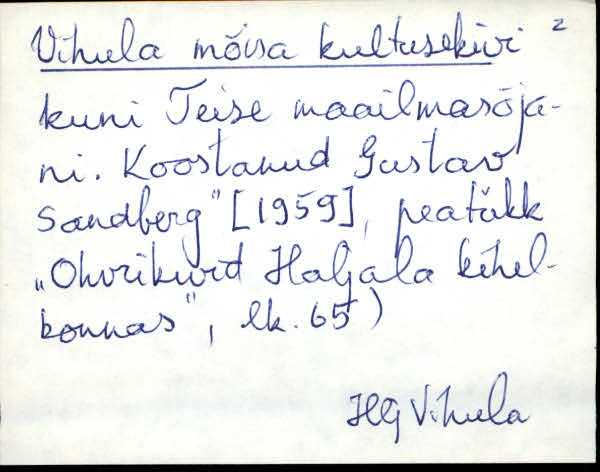 Vihula mõisa kultusekivi 2
kuni Teise maailmasõja-
ni. Koostanud Gustav
Sandberg" [1959], peatükk
„Ohvrikivid Haljala kihel-
konnas", lk. 65)
HG Vihula